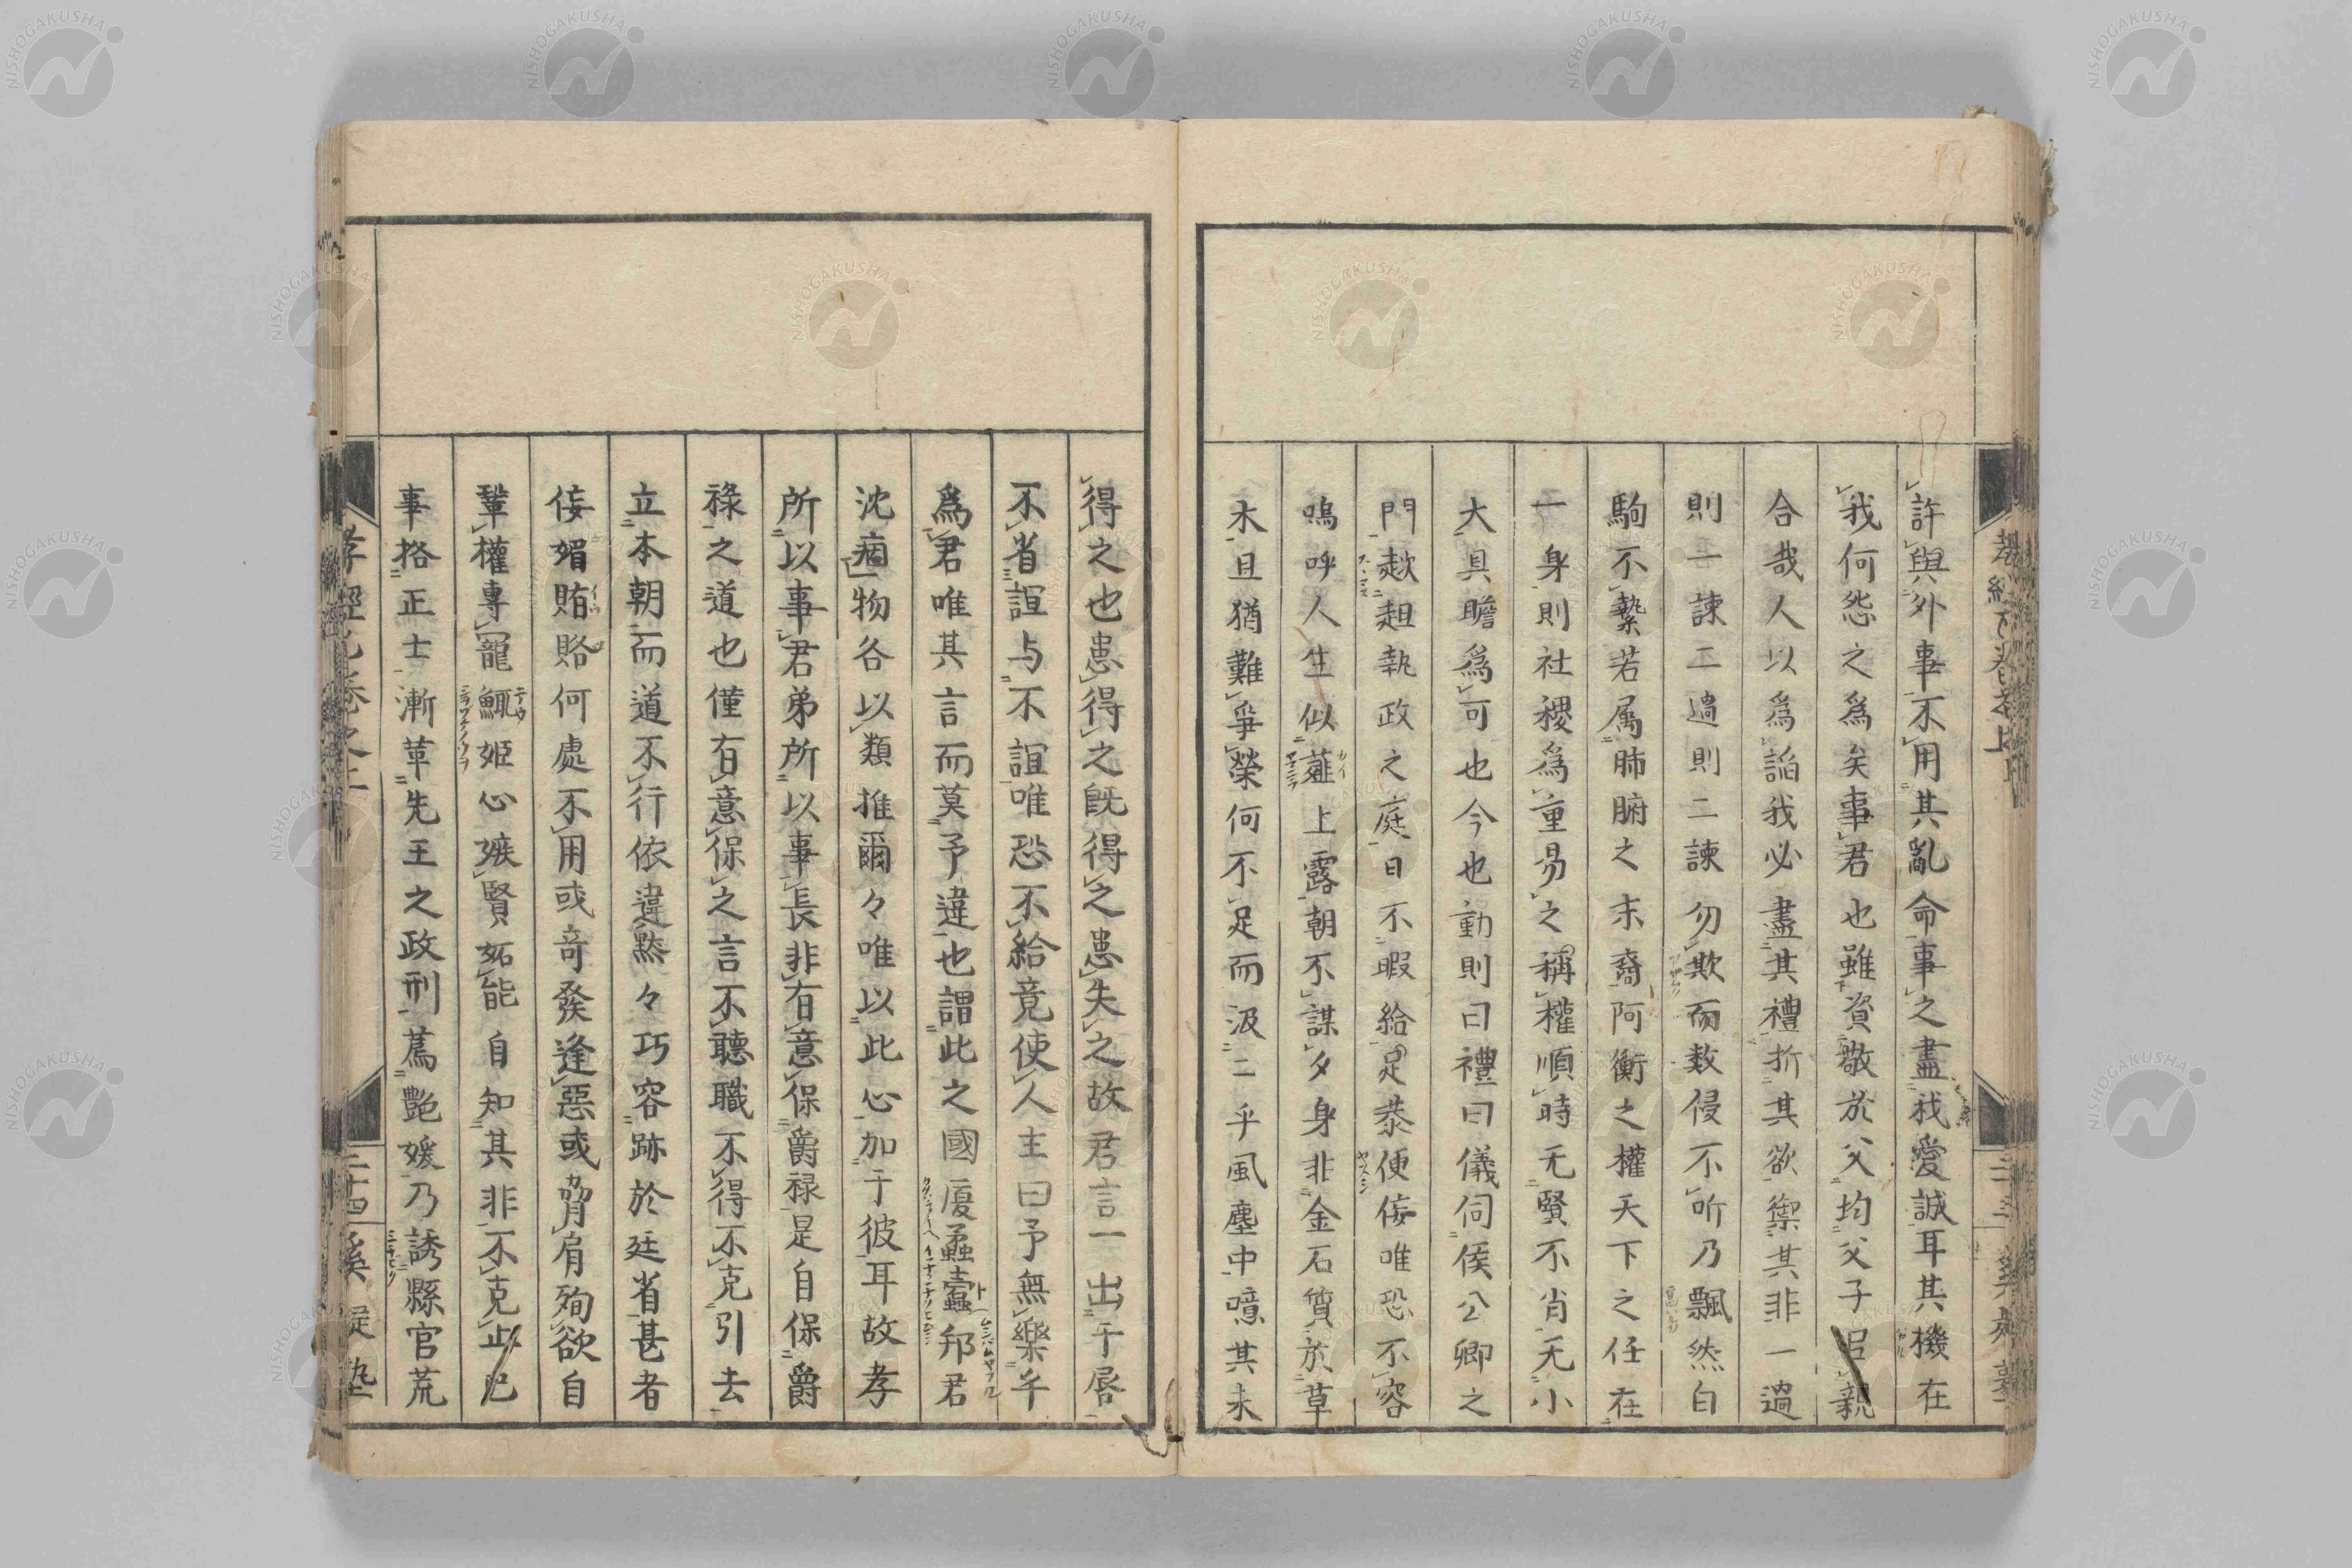 許與外事不用其亂命事之盡我愛誠耳其機在
我何怨之爲矣事君也雖資敬於父均父子呂親
合哉人以爲諂我必盡其禮折其欲禦其非一過
則一諫二過則二諫勿欺而数侵不听乃飄然白
駒不縶若属肺腑之末裔阿衡之權天下之任在
一身則社稷爲重易之稱權順時无賢不肖无小
大具瞻爲可也今也動則曰禮曰儀伺侯公卿之
門趑趄執政之庭日不暇給足恭便佞唯恐不容
嗚呼人生似薤上露朝不謀夕身非金石質於草
木且猶難爭榮何不足而汲二乎風塵中噫其未
得之也患得之既得之患失之故君言一出于唇
不省諠与不諠唯恐不給竟使人主曰予無樂乎
爲君唯其言而莫予違也謂此之國厦蠹蠹邦君
沈痼物各以類推爾々唯以此心加于彼耳故孝
所以事君弟所以事長非有意保爵禄是自保爵
祿之道也僅有意保之言不聴職不得不克引去
立本朝而道不行依違黙々巧容跡於廷省甚者
佞媚賄賂何處不用或奇發逢惡或脅肩殉欲自
輦權專寵鯫姫心嫉賢妬能自知其非不克止己
事挌正士漸革先王之政刑薦艶媛乃誘縣官荒
NISHOGAKUSHA